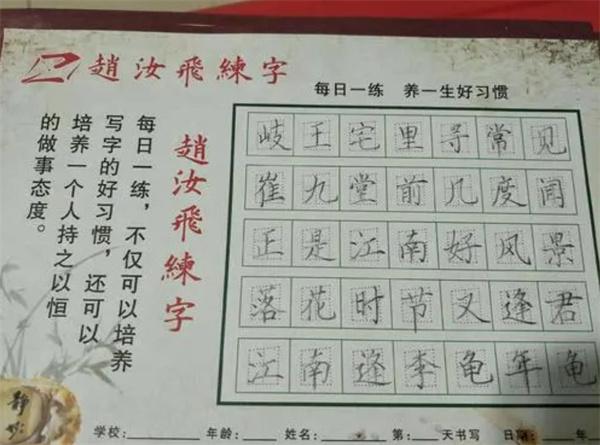 趙汝飛練字
每日一练 养一生好习惯
趙汝飛練字
每日一练，不仅可以培养
写字的好习惯，还可以
培养一个人持之以恒
的做事态度。
岐王宅里寻常见
崔九堂前几度闻
正是江南好风景
落花时节又逢君
江南逢李龟年 龟
学校: 年龄: 姓名: 第: 天书写 日期: 年